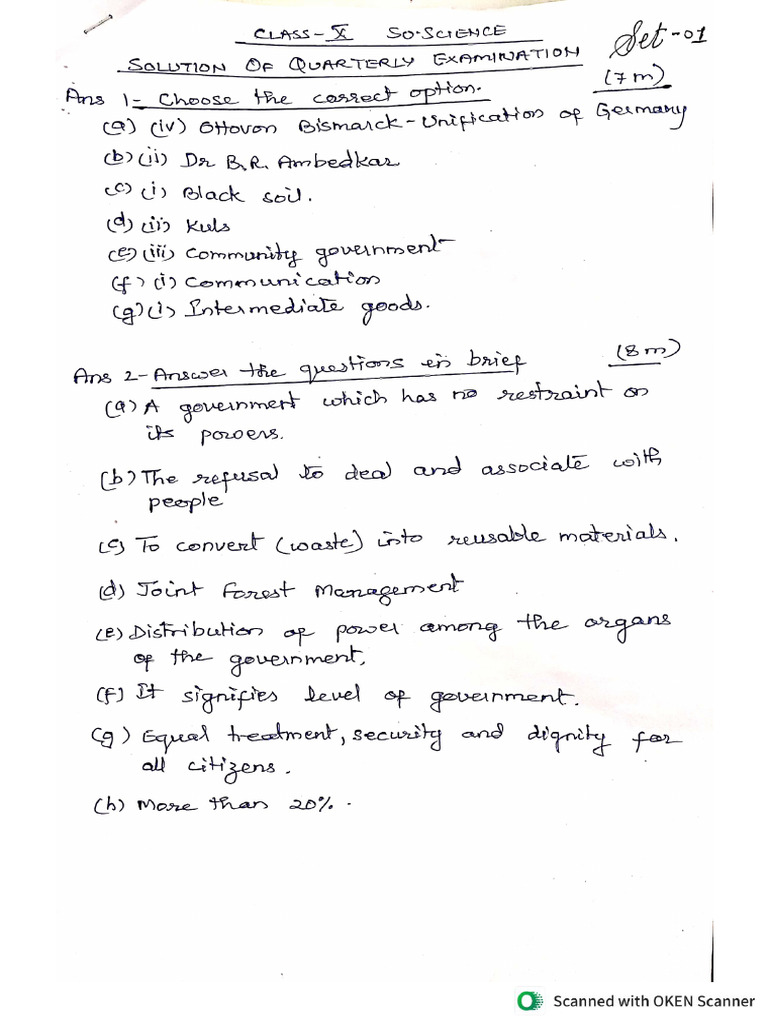 CLASS-X SO.SCIENCE
Set-01
SOLUTION OF QUARTERLY EXAMINATION
Ans 1- Choose the correct option. (7m)
(a) (iv) Ottovon Bismarck-Unification of Germany
(b) (ii) Dr B.R. Ambedkar
(c) (i) Black soil.
(d) (ii) Kuls
(e) (iii) Community government
(f) (i) Communication
(g) (i) Intermediate goods.
Ans 2-Answer the questions in brief (8m)
(a) A government which has no restraint on
its powers.
(b) The refusal to deal and associate with
people
(c) To convert (waste) into reusable materials.
(d) Joint Forest Management
(e) Distribution of power among the organs
of the government.
(f) It signifies level of government.
(g) Equal treatment, security and dignity for
all citizens.
(h) More than 20%.
Scanned with OKEN Scanner